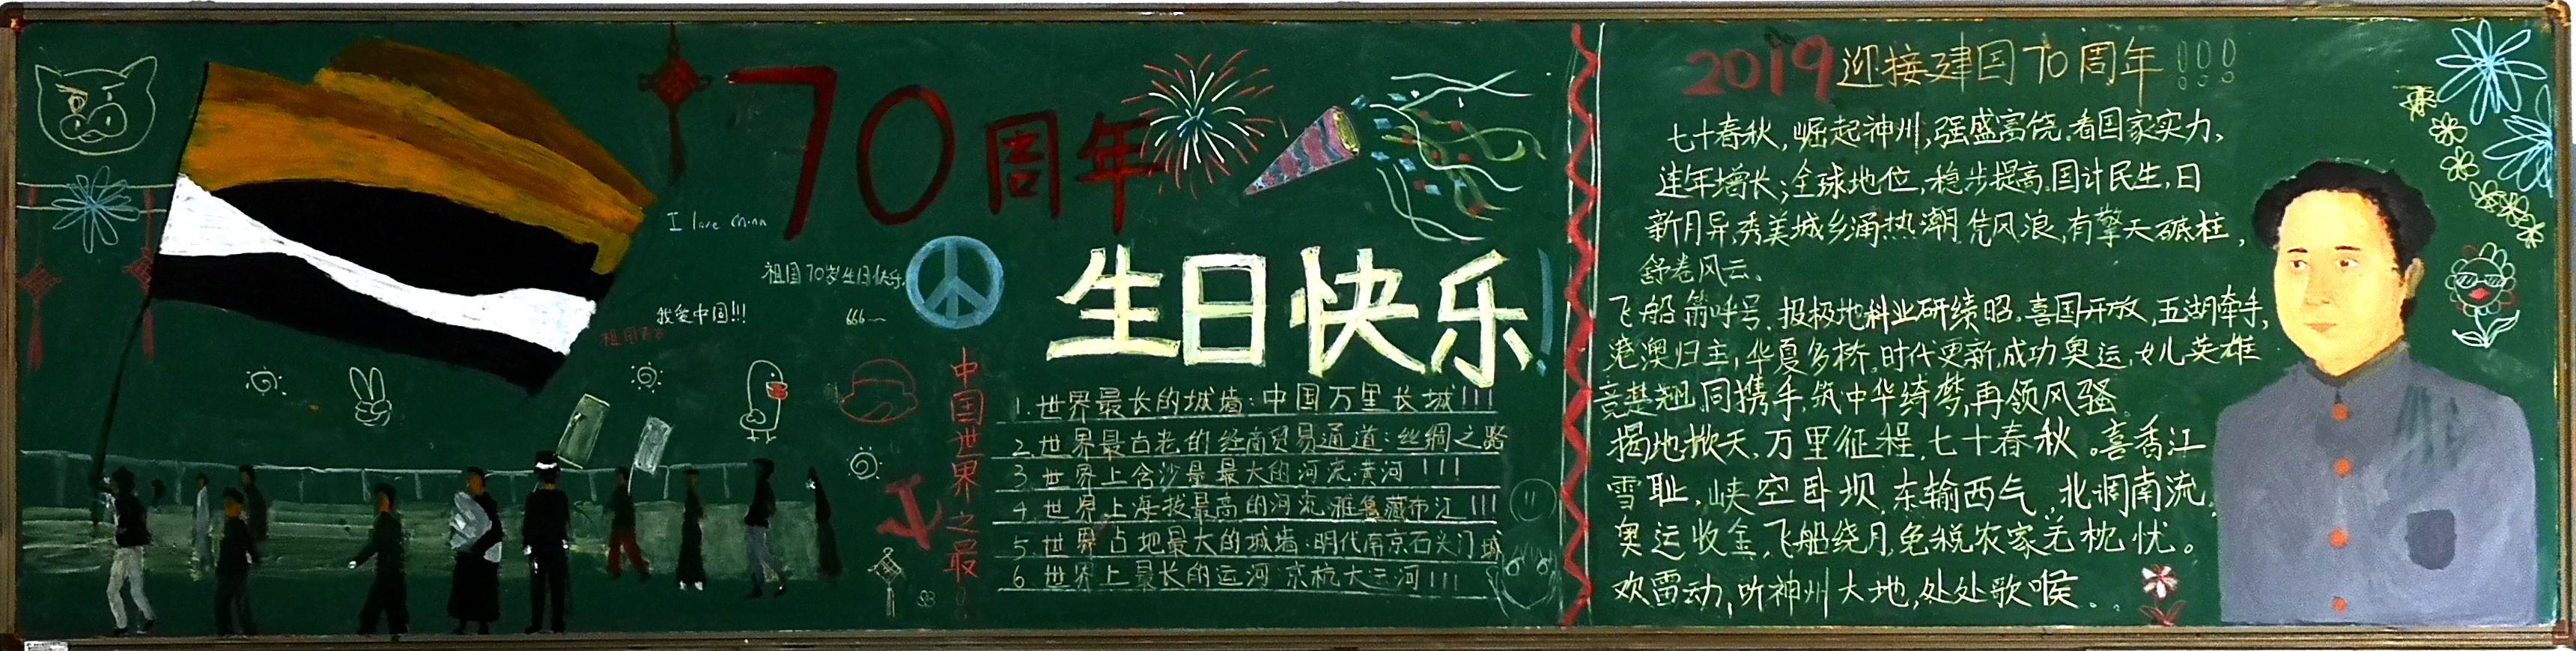 70周年
I love China
祖国70岁生日快乐
我爱中国!!!
666~
生日快乐!
中国世界之最
1.世界最长的城墙:中国万里长城!!!
2.世界最古老的经商贸易通道:丝绸之路
3 世界上含沙量最大的河流:黄河!!!
4.世界上海拔最高的河流:雅鲁藏布江!!!
5.世界占地最大的城墙:明代南京石头门城
6 世界上最长的运河 京杭大运河!!!
2019迎接建国70周年!!!
七十春秋,崛起神州,强盛富饶.看国家实力,
连年增长;全球地位,稳步提高.国计民生,日
新月异,秀美城乡涌热潮.凭风浪,有擎天砥柱,
舒卷风云。
飞船箭呼号,报极地科业研绩昭.喜国开放,五湖牵手,
港澳归主,华夏多桥.时代更新,成功奥运,女儿英雄
竞楚翘.同携手,筑中华绮梦,再领风骚。
揭地掀天,万里征程,七十春秋。喜香江
雪耻,峡空卧坝,东输西气,北调南流,
奥运收金,飞船绕月,免税农家无忧忧。
欢雷动,听神州大地,处处歌喉。